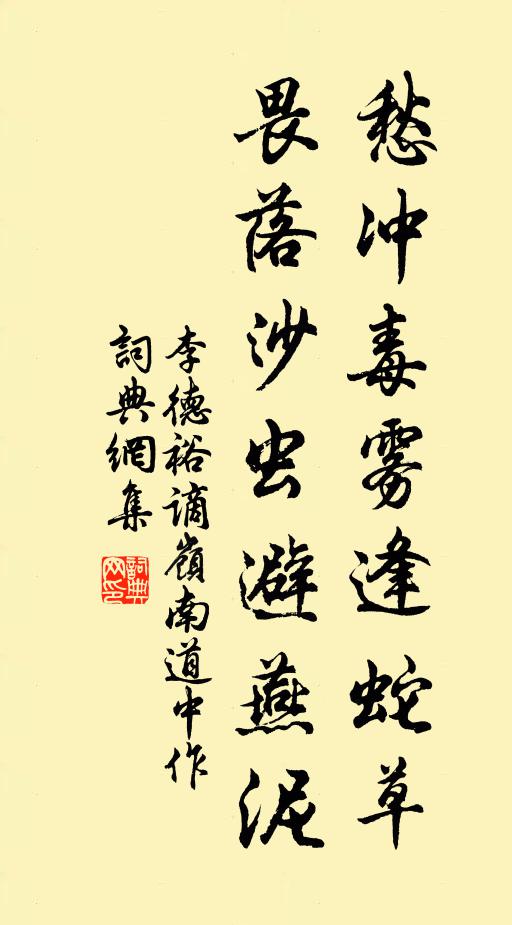 愁冲毒雾逢蛇草
畏落沙虫避燕泥
李德裕谪岭南道中作
詞典網集
詞典网印